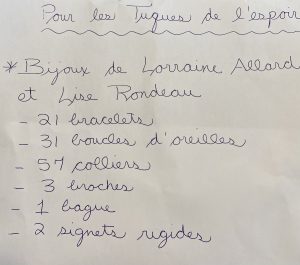 Pour les Tuques de l'espoir
* Bijoux de Lorraine Allard
et Lise Rondeau
- 21 bracelets
- 31 boucles d'oreilles
- 57 colliers
- 3 broches
- 1 bague
- 2 signets rigides